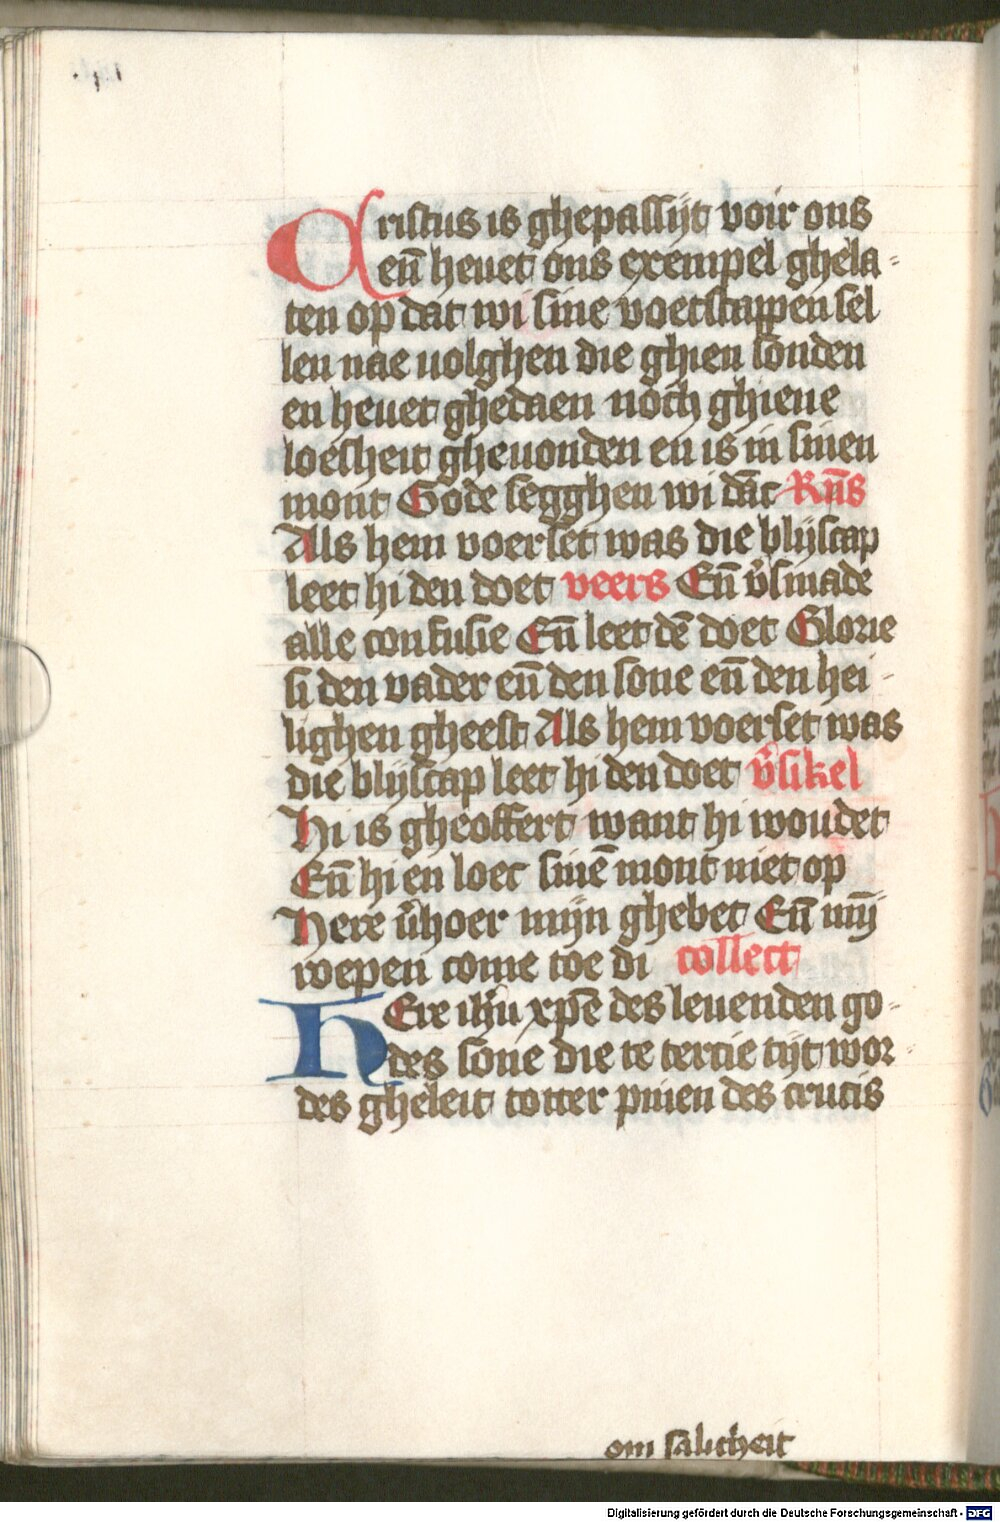 Cristus is ghepassijt voir ons
en̄ heuet ons exempel ghela-
ten op dat wi sine voetstappen sel
len nae uolghen die ghien sonden
en heuet ghedaen noch ghiene
loesheit gheuonden en is in sinen
mont Gode segghen wi dāc Rn̄s
Als hem voerset was die blijscap
leet hi den doet veers En̄ v̉smade
alle confusie En̄ leet dē doet Glorie
si den vader en̄ den sone en̄ den hei-
lighen gheest Als hem voerset was
die blijscap leet hi den doet v̉sikel
Hi is gheoffert want hi woudet
En̄ hi en loec sinē mont niet op
Here v̉hoer mijn ghebet En̄ mȳ
roepen come toe di collect
HEre ih̄u xp̄e des leuenden go-
des sone die te tercie tijt wor-
des gheleit totter pinen des crucis
om salicheit
Digitalisierung gefördert durch die Deutsche Forschungsgemeinschaft - DFG